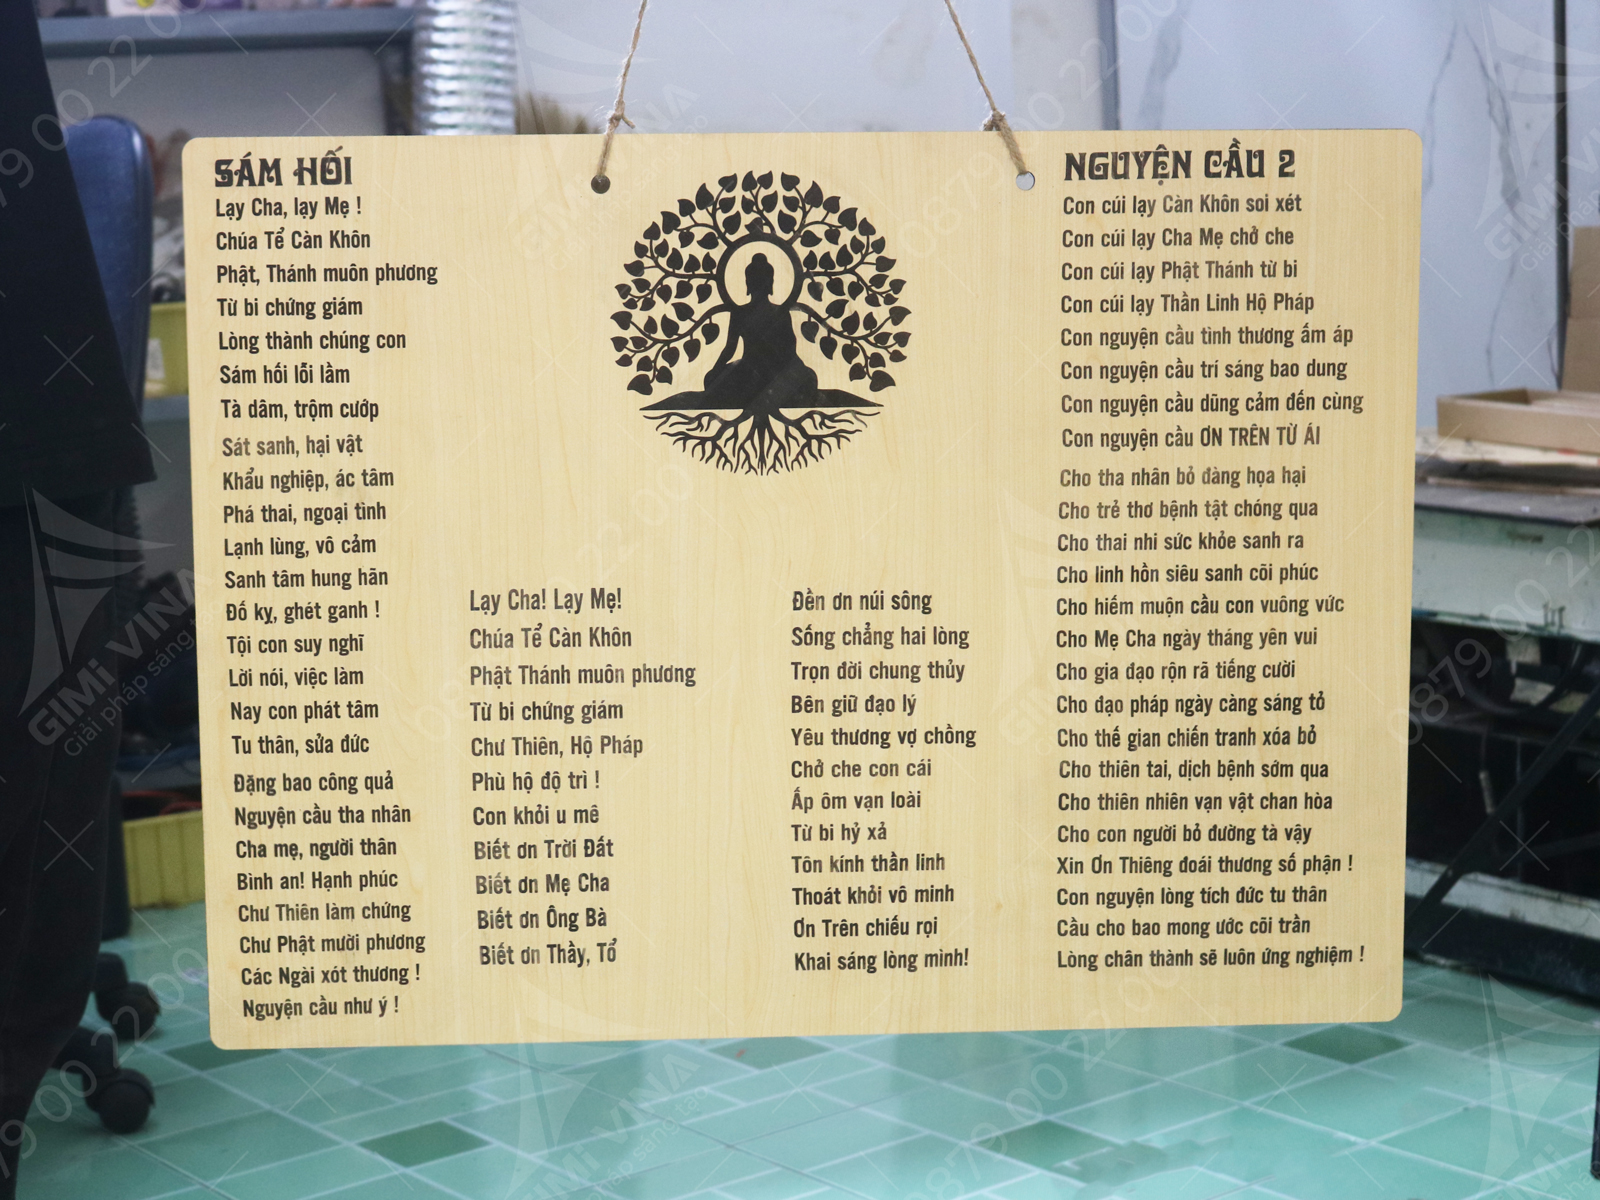 SÁM HỐI
Lạy Cha, lạy Mẹ !
Chúa Tể Càn Khôn
Phật, Thánh muôn phương
Từ bi chứng giám
Lòng thành chúng con
Sám hối lỗi lầm
Tà dâm, trộm cướp
Sát sanh, hại vật
Khẩu nghiệp, ác tâm
Phá thai, ngoại tình
Lạnh lùng, vô cảm
Sanh tâm hung hãn
Đố kỵ, ghét ganh !
Tội con suy nghĩ
Lời nói, việc làm
Nay con phát tâm
Tu thân, sửa đức
Đặng bao công quả
Nguyện cầu tha nhân
Cha mẹ, người thân
Bình an! Hạnh phúc
Chư Thiên làm chứng
Chư Phật mười phương
Các Ngài xót thương !
Nguyện cầu như ý !
Lạy Cha! Lạy Mẹ!
Chúa Tể Càn Khôn
Phật Thánh muôn phương
Từ bi chứng giám
Chư Thiên, Hộ Pháp
Phù hộ độ trì !
Con khỏi u mê
Biết ơn Trời Đất
Biết ơn Mẹ Cha
Biết ơn Ông Bà
Biết ơn Thầy, Tổ
Đền ơn núi sông
Sống chẳng hai lòng
Trọn đời chung thủy
Bên giữ đạo lý
Yêu thương vợ chồng
Chở che con cái
Ấp ôm vạn loài
Từ bi hỷ xả
Tôn kính thần linh
Thoát khỏi vô minh
Ơn Trên chiếu rọi
Khai sáng lòng mình!
NGUYỆN CẦU 2
Con cúi lạy Càn Khôn soi xét
Con cúi lạy Cha Mẹ chở che
Con cúi lạy Phật Thánh từ bi
Con cúi lạy Thần Linh Hộ Pháp
Con nguyện cầu tình thương ấm áp
Con nguyện cầu trí sáng bao dung
Con nguyện cầu dũng cảm đến cùng
Con nguyện cầu ƠN TRÊN TỪ ÁI
Cho tha nhân bỏ đàng họa hại
Cho trẻ thơ bệnh tật chóng qua
Cho thai nhi sức khỏe sanh ra
Cho linh hồn siêu sanh cõi phúc
Cho hiếm muộn cầu con vuông vức
Cho Mẹ Cha ngày tháng yên vui
Cho gia đạo rộn rã tiếng cười
Cho đạo pháp ngày càng sáng tỏ
Cho thế gian chiến tranh xóa bỏ
Cho thiên tai, dịch bệnh sớm qua
Cho thiên nhiên vạn vật chan hòa
Cho con người bỏ đường tà vậy
Xin Ơn Thiêng đoái thương số phận !
Con nguyện lòng tích đức tu thân
Cầu cho bao mong ước cõi trần
Lòng chân thành sẽ luôn ứng nghiệm !
GIMI VINA
Giải pháp sáng tạo
0879 00 22 00